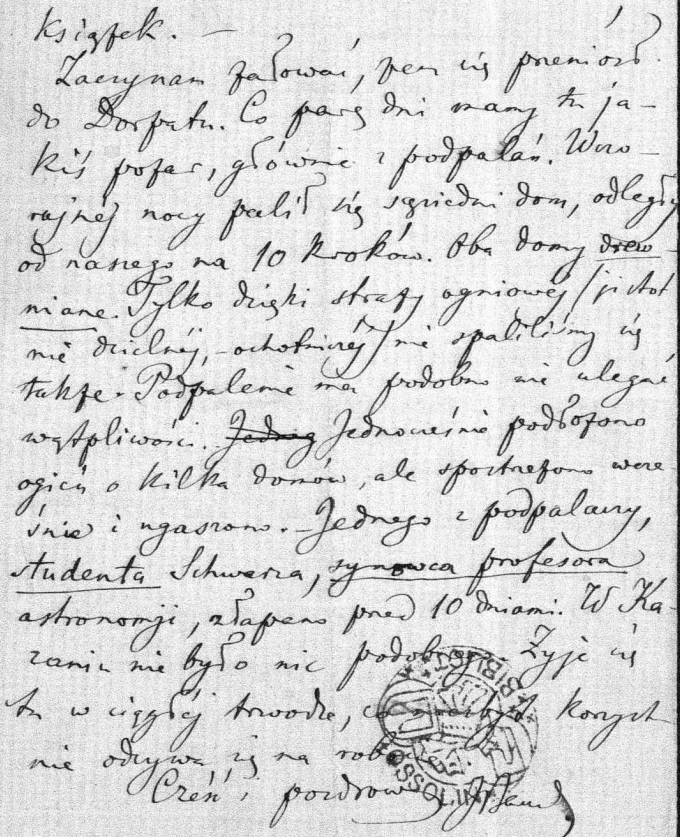 książek. —
Zaczynam żałować, żem się przeniósł
do Dorpatu. Co parę dni mamy tu ja-
kiś pożar, głównie z podpalań. Wczo-
rajszéj nocy palił się sąsiedni dom, odległy
od naszego na 10 kroków. Oba domy drew-
niane. Tylko dzięki straży ogniowéj (istot
nie dzielnéj, – ochotniczéj) nie spaliliśmy się
także. Podpalenie ma podobno nie ulegać
wątpliwości. Jednocześnie podłożono
ogień o kilka domów, ale spostrzeżono wcze
śnie i ugaszono. – Jednego z podpalaczy,
studenta Schwarza, synowca profesora
astronomji, złapano przed 10 dniami. W Ka-
zaniu nie było nic podobnego. Żyje się
tu w ciągłéj trwodze, co
nie odzywa się na
Cześć i pozdrow